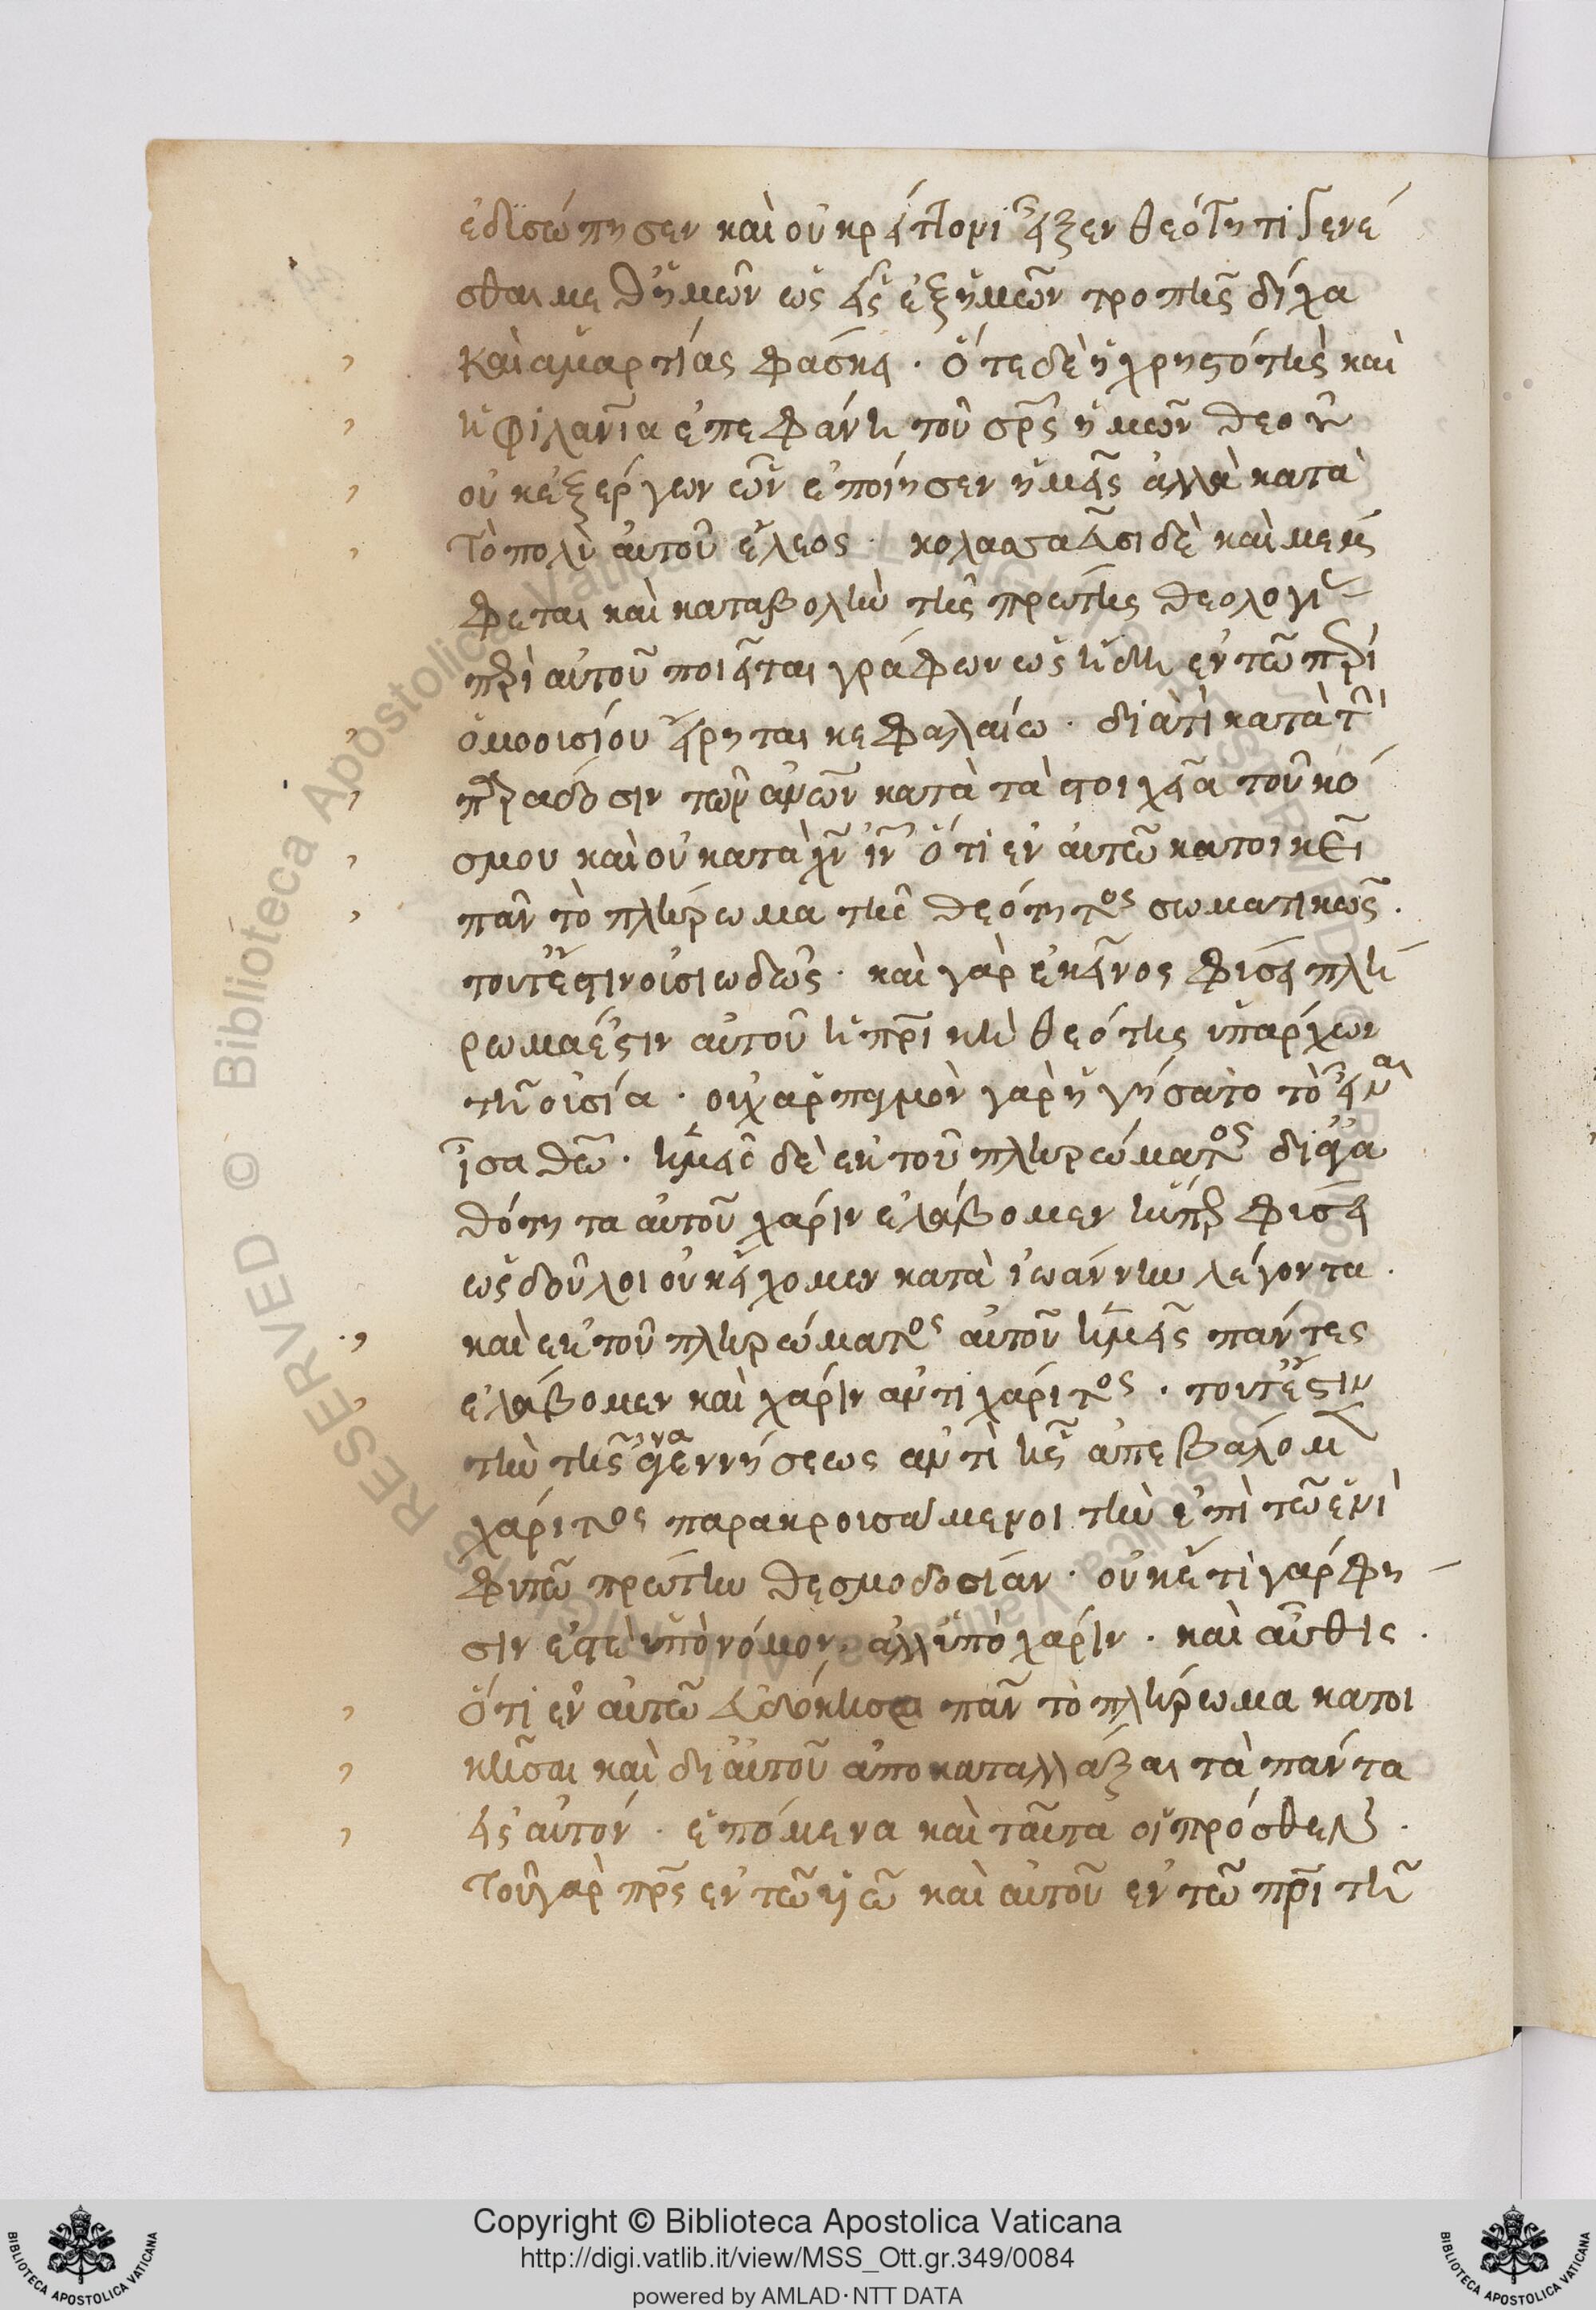 ἐδυσώπησεν καὶ οὐ κρείττονι εἶξεν θεότητι γενέ
σθαι μεθ ἡμῶν ὡς εἷς ἐξ ἡμῶν τροπῆς δίχα
καὶ ἁμαρτίας φάσκει · ὅτε δὲ ἡ χρηστότης καὶ
ἡ φιλανία ἐπεφάνη τοῦ σρς ἡμῶν θεοῦ
οὐκ ἐξ ἔργων ὧν ἐποίησεν ἡμεῖς ἀλλὰ κατὰ
τὸ πολὺ αὐτοῦ ἔλεος · κολασσαεῦσι δὲ καὶ μέμ
φεται καὶ καταβολὴν τῆς πρώτης θεολογι
πρὶ αὐτοῦ ποιεῖται γράφων ὡς ἤδη ἐν τῶ πρὶ
ὁμοουσίου εἴρηται κεφαλαίω · διατὶ κατὰ τὴν
πρἀδοσιν τῶν ανων κατὰ τὰ στοιχεῖα τοῦ κό
σμου καὶ οὐ κατὰ χν ιν ὅτι ἐν αὐτῶ κατοικεῖ
πᾶν τὸ πλήρωμα τῆς θεότητος σωματικῶς ·
τουτέστιν οὐσιωδῶς · καὶ γὰρ ἐκεῖνος φύσει πλή
ρωμα ἐστιν αὐτοῦ ἡ πρικὴ θεότης ὑπάρχων
τῆ οὐσία · οὐχ ἁρπαγμὸν γὰρ ἡγήσατο τὸ εἶναι
ἶσα θω · ἡμεῖς δὲ ἐκ τοῦ πληρώματος δι ἀγα
θότητα αὐτοῦ χάριν ἐλάβομεν ἥνπερ φύσει
ὡς δοῦλοι οὐκ εἴχομεν κατὰ ἰωάννην λέγοντα ·
καὶ ἐκ τοῦ πληρώματος αὐτοῦ ἡμεῖς πάντες
ἐλάβομεν καὶ χάριν ἀντὶ χάριτος · τουτέστιν
τὴν τῆς ἀναγεννήσεως ἀντὶ ἧς ἀπεβαλομ
χάριτος παρακρουσάμενοι τὴν ἐπὶ τῶ ἑνὶ
φυτῶ πρώτην θεσμοδοσίαν · οὐκέτι γὰρ φη
σιν ἐστὲ ὑπὸ νόμον ἀλλ ὑπὸ χάριν · καὶ αὖθις ·
ὅτι ἐν αὐτῶ εὐδόκησε πᾶν τὸ πλήρωμα κατοι
κῆσαι καὶ δι αὐτοῦ ἀποκαταλλάξαι τὰ πάντα
εἰς αὐτόν · ἑπόμενα καὶ ταῦτα οἱ πρόσθεν ·
τοῦ γὰρ πρς ἐν τῶ υἱῶ καὶ αὐτοῦ ἐν τῶ πρὶ τῆ
Copyright © Biblioteca Apostolica Vaticana
http://digi.vatlib.it/view/MSS_Ott.gr.349/0084
powered by AMLAD·NTT DATA